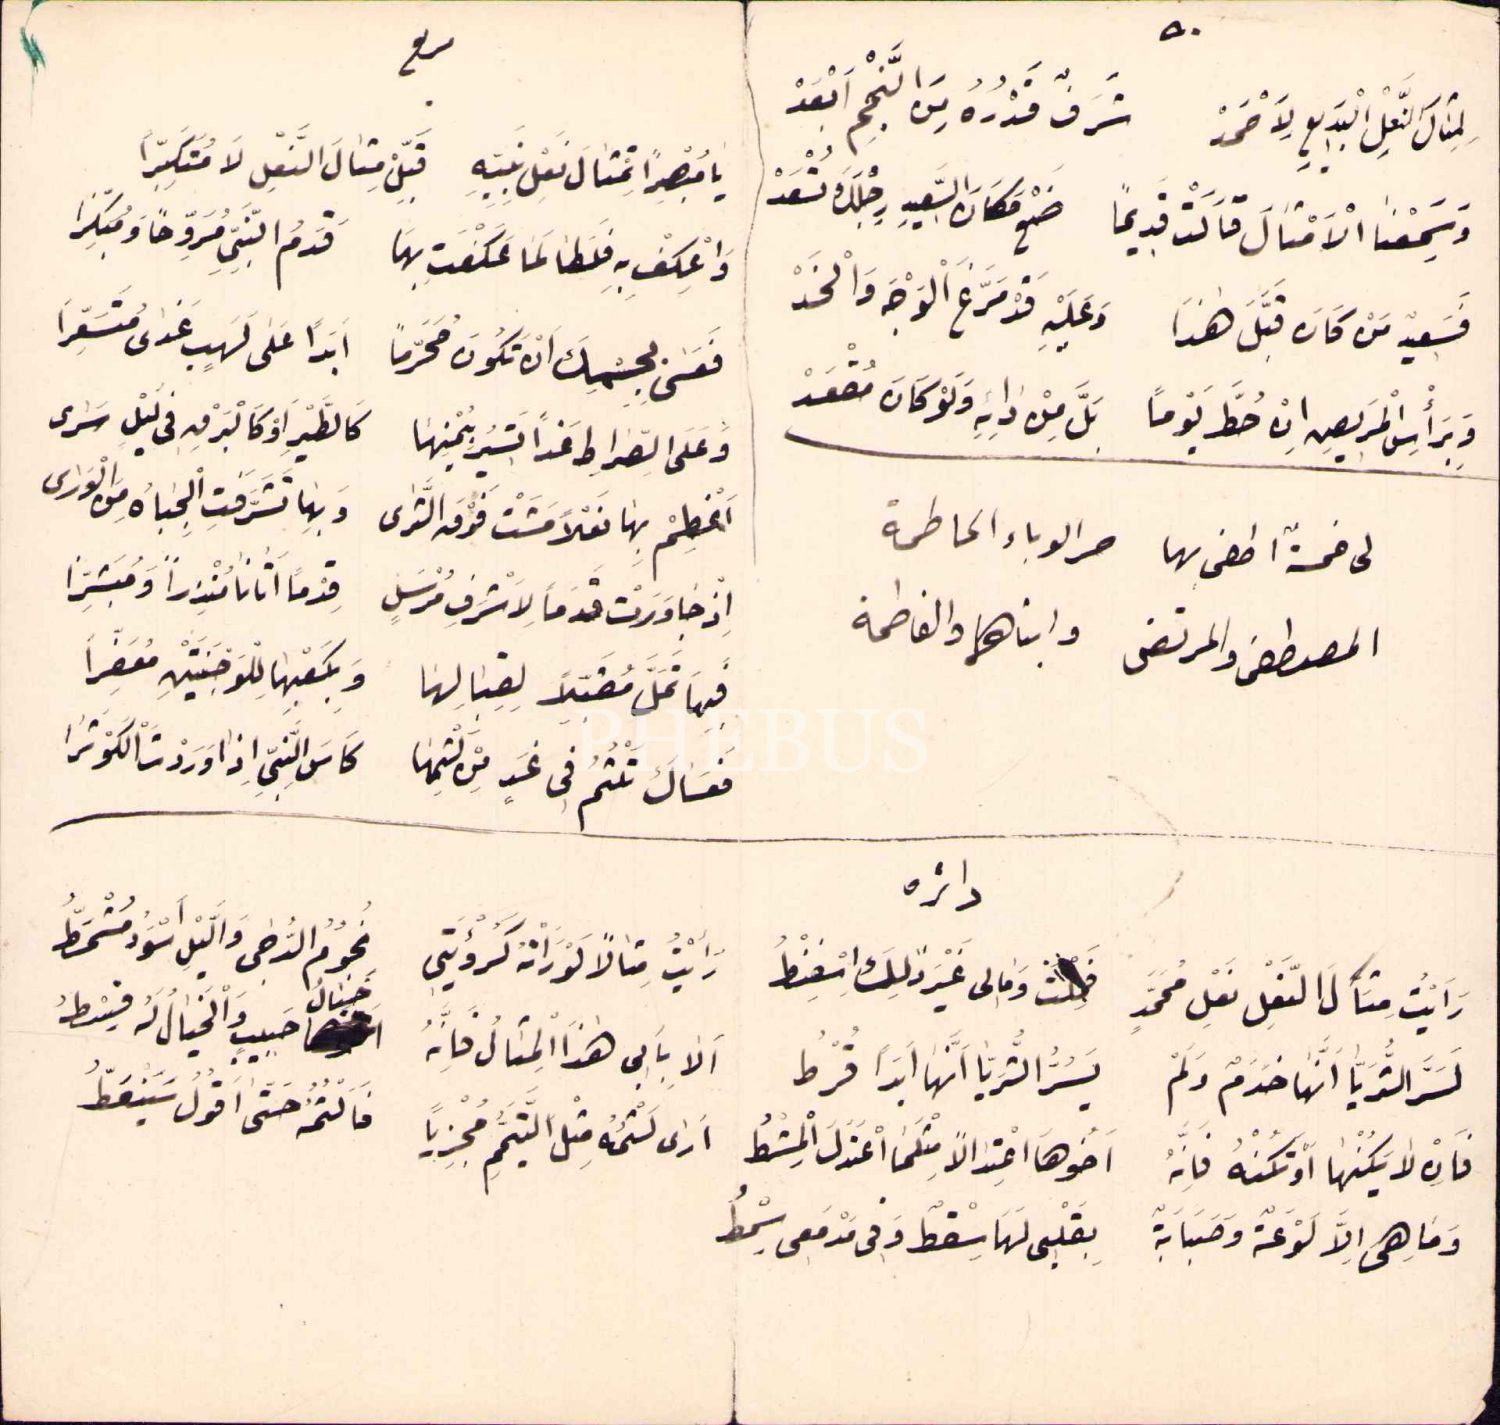 ٥٠
لِمِثَالِ النَّعْلِ الْبَدِيعِ لِاَحْمَدْ شَرَفٌ قَدْرُهُ مِنَ النَّجْمِ اَبْعَدْ
وَسَمِعْنَا الْاَمْثَالَ قَالَتْ قَدِيمًا ضَعْ مَكَانَ السَّعِيدِ رِجْلَكَ تُسْعَدْ
فَسَعِيدٌ مَنْ كَانَ قَبَّلَ هٰذَا وَعَلَيْهِ قَدْ مَرَّغَ الْوَجْهَ وَالْخَدْ
وَبِرَأْسِ الْمَرِيضِ اِنْ حُطَّ يَوْمًا بَلَّ مِنْ دَائِهِ وَلَوْ كَانَ مُقْعَدْ
لى خمسة اطفى بها حر الوباء الحاطمة
المصطفى والمرتضى وابناهما والفاطمة
مربع
يَا مُبْصِرًا تِمْثَالَ نَعْلِ نَبِيِّهِ قَبِّلْ مِثَالَ النَّعْلِ لَا مُتَكَبِّرًا
وَاعْكِفْ بِهِ فَلَطَالَمَا عَكَفَتْ بِهَا قَدَمُ النَّبِيِّ مُرَوِّحًا وَمُبَكِّرًا
فَعَسٰى لِجِسْمِكَ اَنْ تَكُونَ مُحَرَّمًا اَبَدًا عَلٰى لَهَبٍ غَدٰى مُتَسَعِّرَا
وَعَلَى الصِّرَاطِ غَدًا تَسِيرُ بِيُمْنِهَا كَالطَّيْرِ اَوْ كَالْبَرْقِ فِى لَيْلٍ سَرٰى
اَعْظِمْ بِهَا نَعْلًا مَشَتْ فَوْقَ الثَّرٰى وَبِهَا تَشَرَّفَتِ الْجِبَاهُ مِنَ الْوَرٰى
اِذْ جَاوَرَتْ قَدَمًا لِاَشْرَفِ مُرْسَلٍ قِدْمًا اَتَانَا مُنْذِرًا وَمُبَشِّرًا
فَبِهَا تَمَلَّ مُقَبِّلًا لِقِبَالِهَا وَبِكَعْبِهَا لِلْوَجْنَتَيْنِ مُعَفِّرًا
فَعَسَاكَ تَلْثُمُ فِى غَدٍ مِنْ لَثْمِهَا كَاسَ النَّبِيِّ اِذَا وَرَدْتَ الْكَوْثَرَا
دائره
رَاَيْتُ مِثَالَ النَّعْلِ نَعْلِ مُحَمَّدٍ فَقُلْتُ وَمَالِى غَيْرَ ذٰلِكَ اِسْفِنْطُ
لَسَرَّ الثُّرَيَّا اَنَّهَا خَدَمٌ وَلَمْ يَسُرَّ الثُّرَيَّا اَنَّهَا اَبَدًا قُرْطُ
فَاِنْ لَا يَكُنْهَا اَوْ تَكُنْهُ فَاِنَّهُ اَخُوهَا اعْتِدَالًا مِثْلَمَا اعْتَدَلَ الْمِشْطُ
وَمَا هِىَ اِلَّا لَوْعَةٌ وَصَبَابَةٌ بِقَلْبِى لَهَا سِقْطٌ وَفِى مَدْمَعِى سِمْطُ
رَاَيْتُ مِثَالًا لَوْ رَاَتْهُ كَرُؤْيَتِى نُجُومُ الدُّجٰى وَالَّيْلُ اَسْوَدُ مُشْمَطُّ
اَلَا بِاَبِى هٰذَا الْمِثَالُ فَاِنَّهُ خَيَالُ حَبِيبٍ وَالْخَيَالُ لَهُ قِسْطُ
اَرٰى لَثْمَهُ مِثْلَ التَّيَمُّمِ مُجْزِيًا فَاَلْثُمُهُ حَتّٰى اَقُولُ سَيَنْعَطُّ
PHEBUS